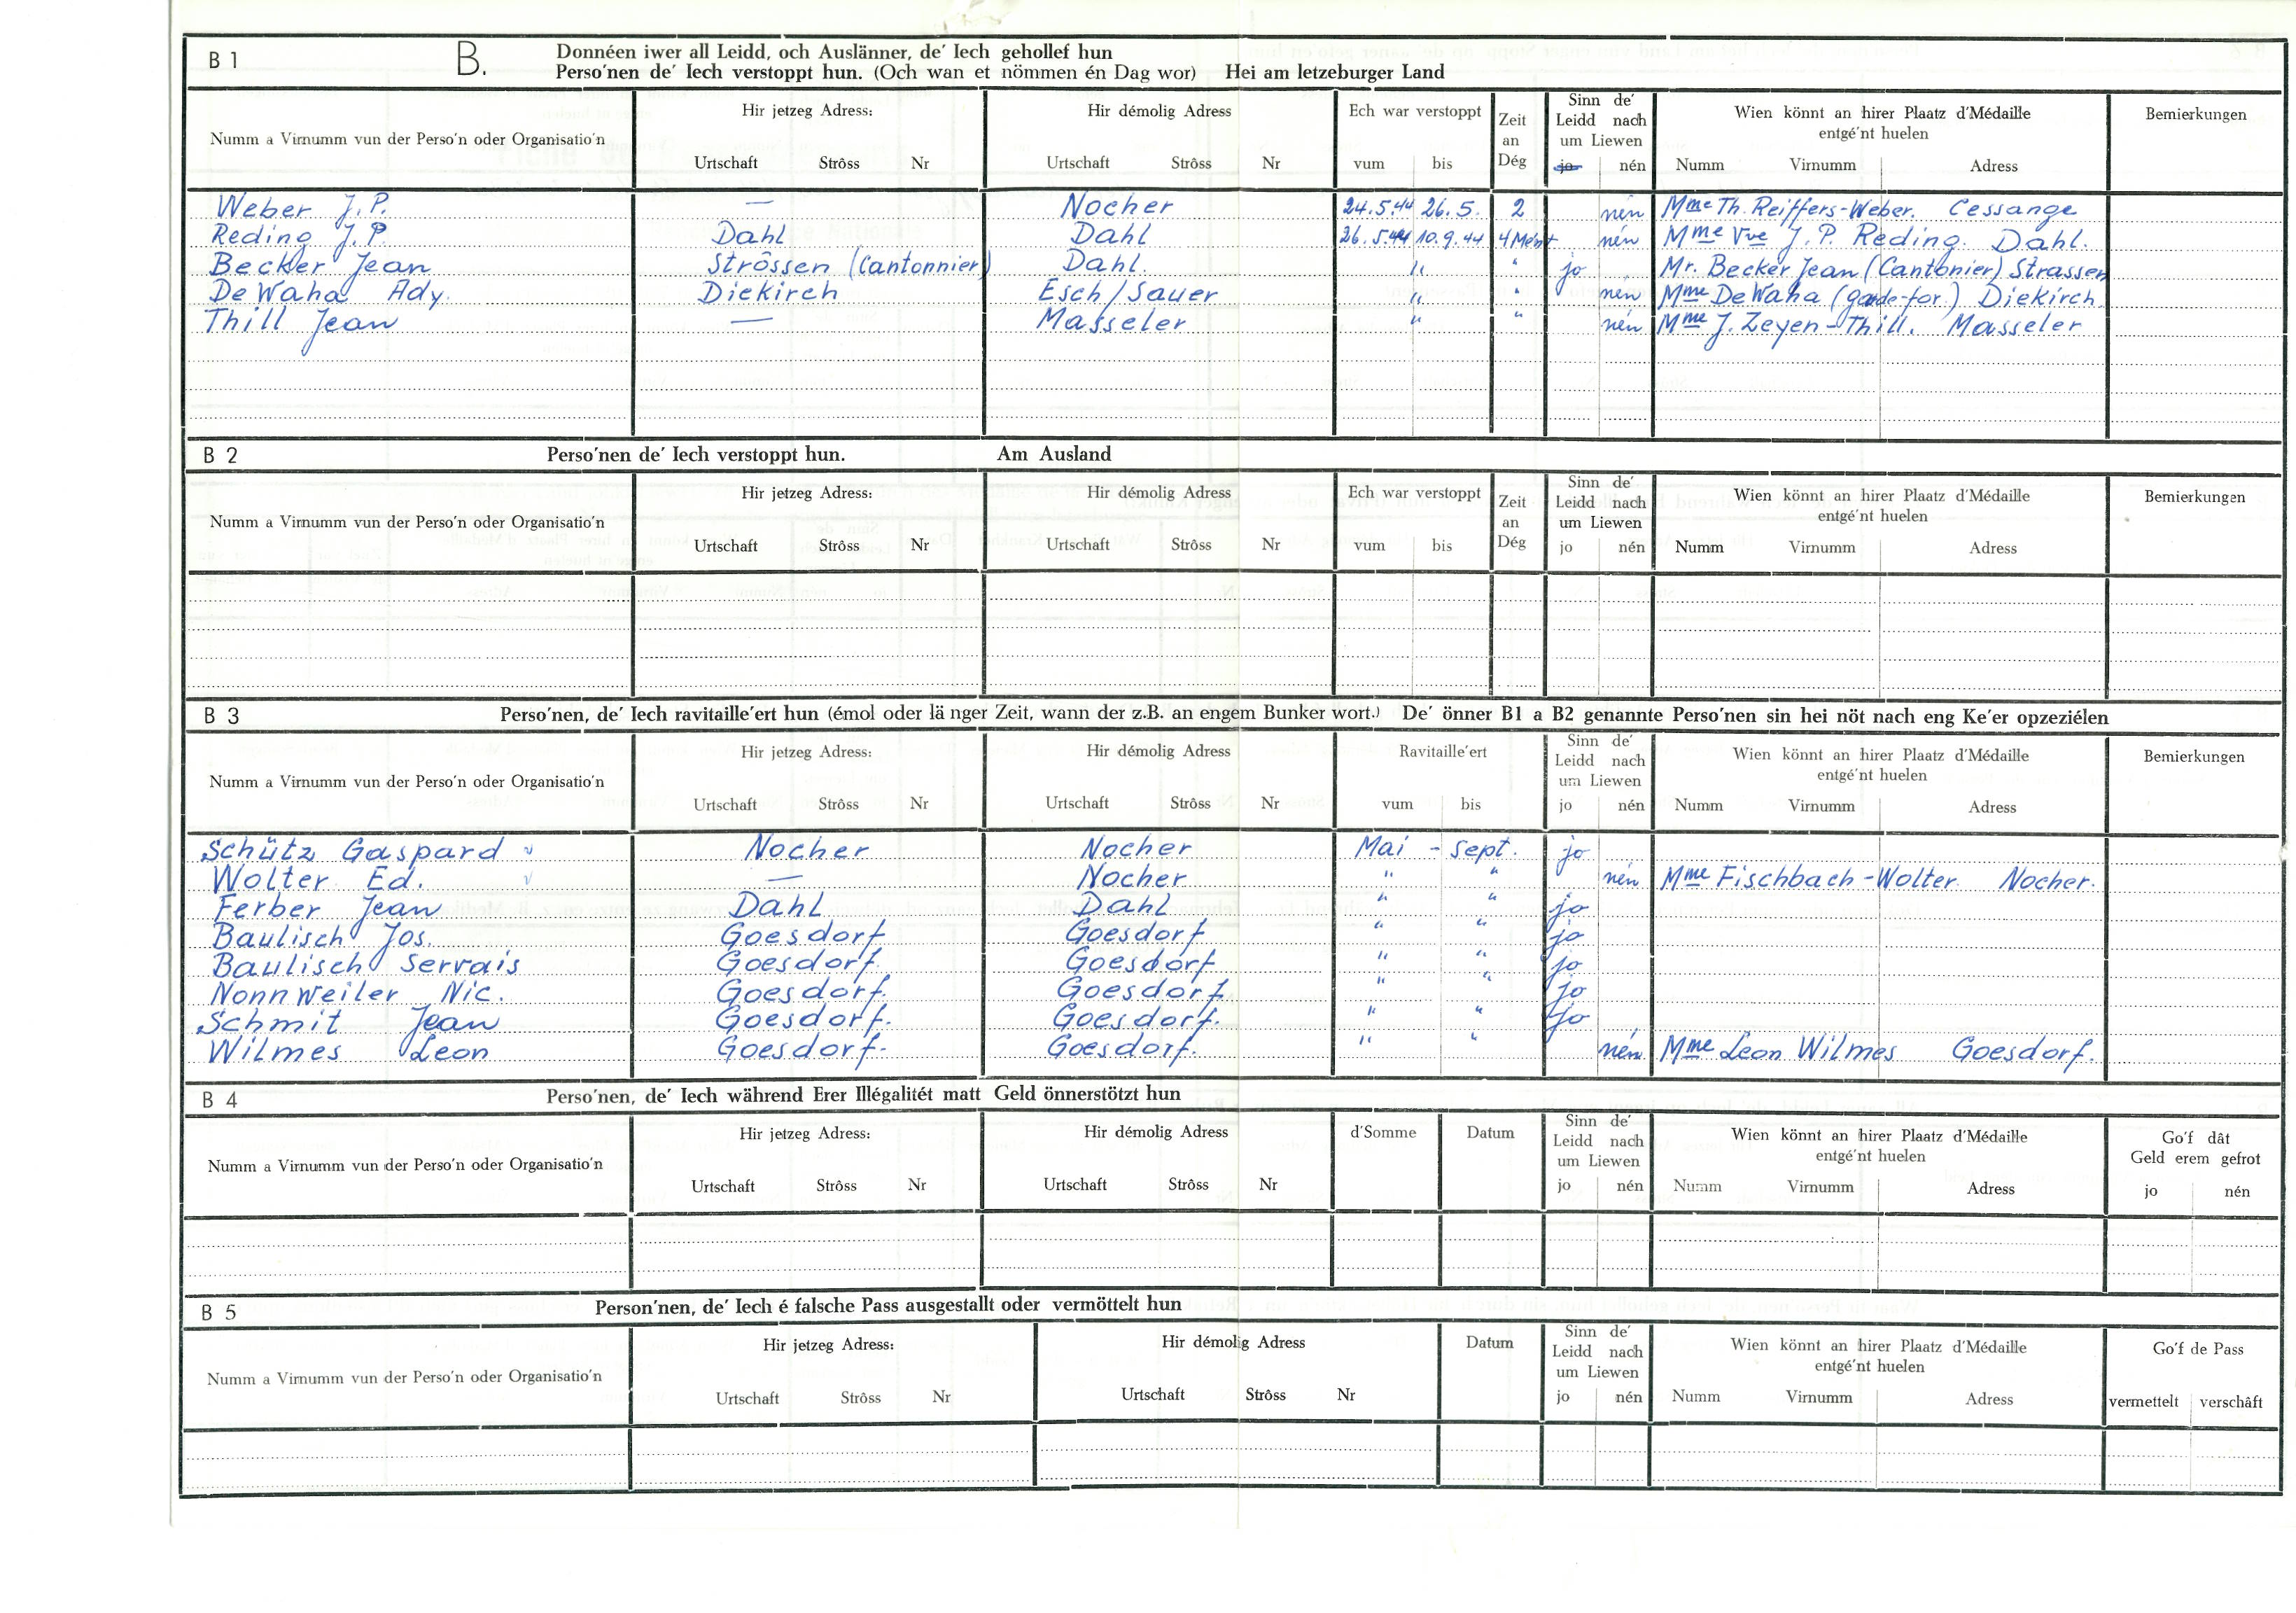 B 1 B. Donnéen iwer all Leidd, och Auslänner, de' Iech gehollef hun
Perso'nen de' Iech verstoppt hun. (Och wan et nömmen én Dag wor) Hei am letzeburger Land
Numm a Virnumm vun der Perso'n oder Organisatio'n Hir jetzeg Adress: Urtschaft Strôss Nr Hir démolig Adress Urtschaft Strôss Nr Ech war verstoppt vum bis Zeit an Dég Sinn de' Leidd nach um Liewen jo nén Wien könnt an hirer Plaatz d'Médaille entgé'nt huelen Numm Virnumm Adress Bemierkungen
Weber J.P. — Nocher 24.5.44 26.5. 2 nén Mme Th. Reiffers-Weber. Cessange
Reding J.P. Dahl Dahl 26.5.44 10.9.44 4 Mént nén Mme Vve J.P. Reding. Dahl.
Becker Jean Strôssen (Cantonnier) Dahl. " " jo Mr. Becker Jean (Cantonier) Strassen
De Waha Ady. Diekirch Esch/Sauer " " nén Mme De Waha (garde-for.) Diekirch.
Thill Jean — Masseler " " nén Mme J. Zeyen-Thill. Masseler
B 2 Perso'nen de' Iech verstoppt hun. Am Ausland
Numm a Virnumm vun der Perso'n oder Organisatio'n Hir jetzeg Adress: Urtschaft Strôss Nr Hir démolig Adress Urtschaft Strôss Nr Ech war verstoppt vum bis Zeit an Dég Sinn de' Leidd nach um Liewen jo nén Wien könnt an hirer Plaatz d'Médaille entgé'nt huelen Numm Virnumm Adress Bemierkungen
B 3 Perso'nen, de' Iech ravitaille'ert hun (émol oder lä nger Zeit, wann der z.B. an engem Bunker wort.) De' önner B1 a B2 genannte Perso'nen sin hei nöt nach eng Ke'er opzeziélen
Numm a Virnumm vun der Perso'n oder Organisatio'n Hir jetzeg Adress: Urtschaft Strôss Nr Hir démolig Adress Urtschaft Strôss Nr Ravitaille'ert vum bis Sinn de' Leidd nach um Liewen jo nén Wien könnt an hirer Plaatz d'Médaille entgé'nt huelen Numm Virnumm Adress Bemierkungen
Schütz Gaspard Nocher Nocher Mai - Sept. jo
Wolter Ed. — Nocher " " nén Mme Fischbach-Wolter Nocher.
Ferber Jean Dahl Dahl " " jo
Baulisch Jos. Goesdorf Goesdorf " " jo
Baulisch Servais Goesdorf. Goesdorf " " jo
Nonnweiler Nic. Goesdorf. Goesdorf " " jo
Schmit Jean Goesdorf. Goesdorf. " " jo
Wilmes Leon Goesdorf. Goesdorf. " " nén Mme Leon Wilmes Goesdorf.
B 4 Perso'nen, de' Iech während Erer Illégalitét matt Geld önnerstötzt hun
Numm a Virnumm vun der Perso'n oder Organisatio'n Hir jetzeg Adress: Urtschaft Strôss Nr Hir démolig Adress Urtschaft Strôss Nr d'Somme Datum Sinn de' Leidd nach um Liewen jo nén Wien könnt an hirer Plaatz d'Médaille entgé'nt huelen Numm Virnumm Adress Go'f dât Geld erem gefrot jo nén
B 5 Person'nen, de' Iech é falsche Pass ausgestallt oder vermöttelt hun
Numm a Virnumm vun der Perso'n oder Organisatio'n Hir jetzeg Adress: Urtschaft Strôss Nr Hir démolig Adress Urtschaft Strôss Nr Datum Sinn de' Leidd nach um Liewen jo nén Wien könnt an hirer Plaatz d'Médaille entgé'nt huelen Numm Virnumm Adress Go'f de Pass vermettelt verschâft